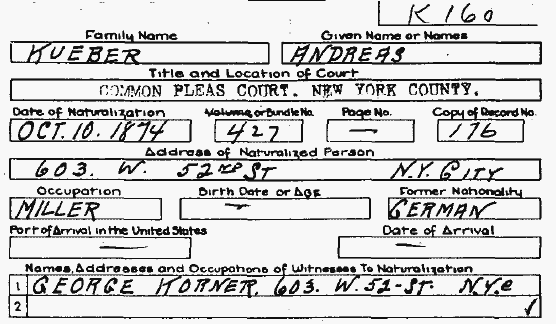 K 160
Family Name Given Name or Names
KUEBER ANDREAS
Title and Location of Court
COMMON PLEAS COURT. NEW YORK COUNTY.
Date of Naturalization Volume or Bundle No. Page No. Copy of Record No.
OCT. 10. 1874 427 — 176
Address of Naturalized Person
603. W. 52ND ST N.Y. CITY
Occupation Birth Date or Age Former Nationality
MILLER — GERMAN
Port of Arrival in the United States Date of Arrival
— —
Names, Addresses and Occupations of Witnesses To Naturalization
1 GEORGE KORNER. 603. W. 52-ST. N.Y.C
2